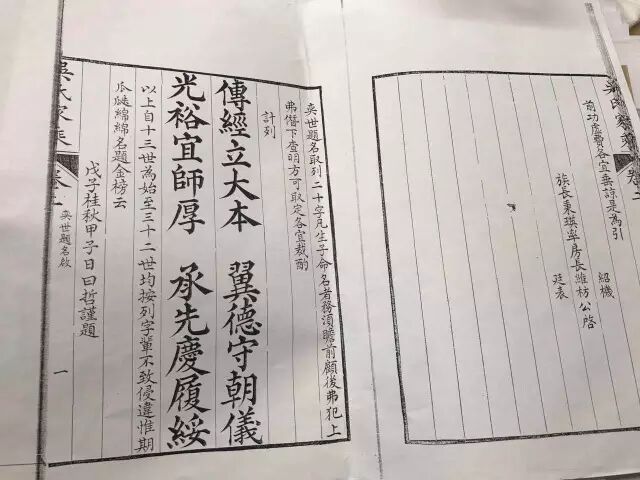 吳氏家乘 卷二
前功虛費各宜垂諒是為引
紹機
族長秉琪率房長維枋公啓
廷表
奕世題名取列二十字凡生子命名者務須瞻前顧後弗犯上
弗僭下查明方可取定各宜裁酌
計列
傳經立大本 翼德守朝儀
光裕宜師厚 承先慶履綏
以上自十三世為始至三十二世均按列字輩不致侵違惟期
瓜瓞綿綿名題金榜云
戊子桂秋甲子日曰哲謹題
吳氏家乘 奕世題名啟 一